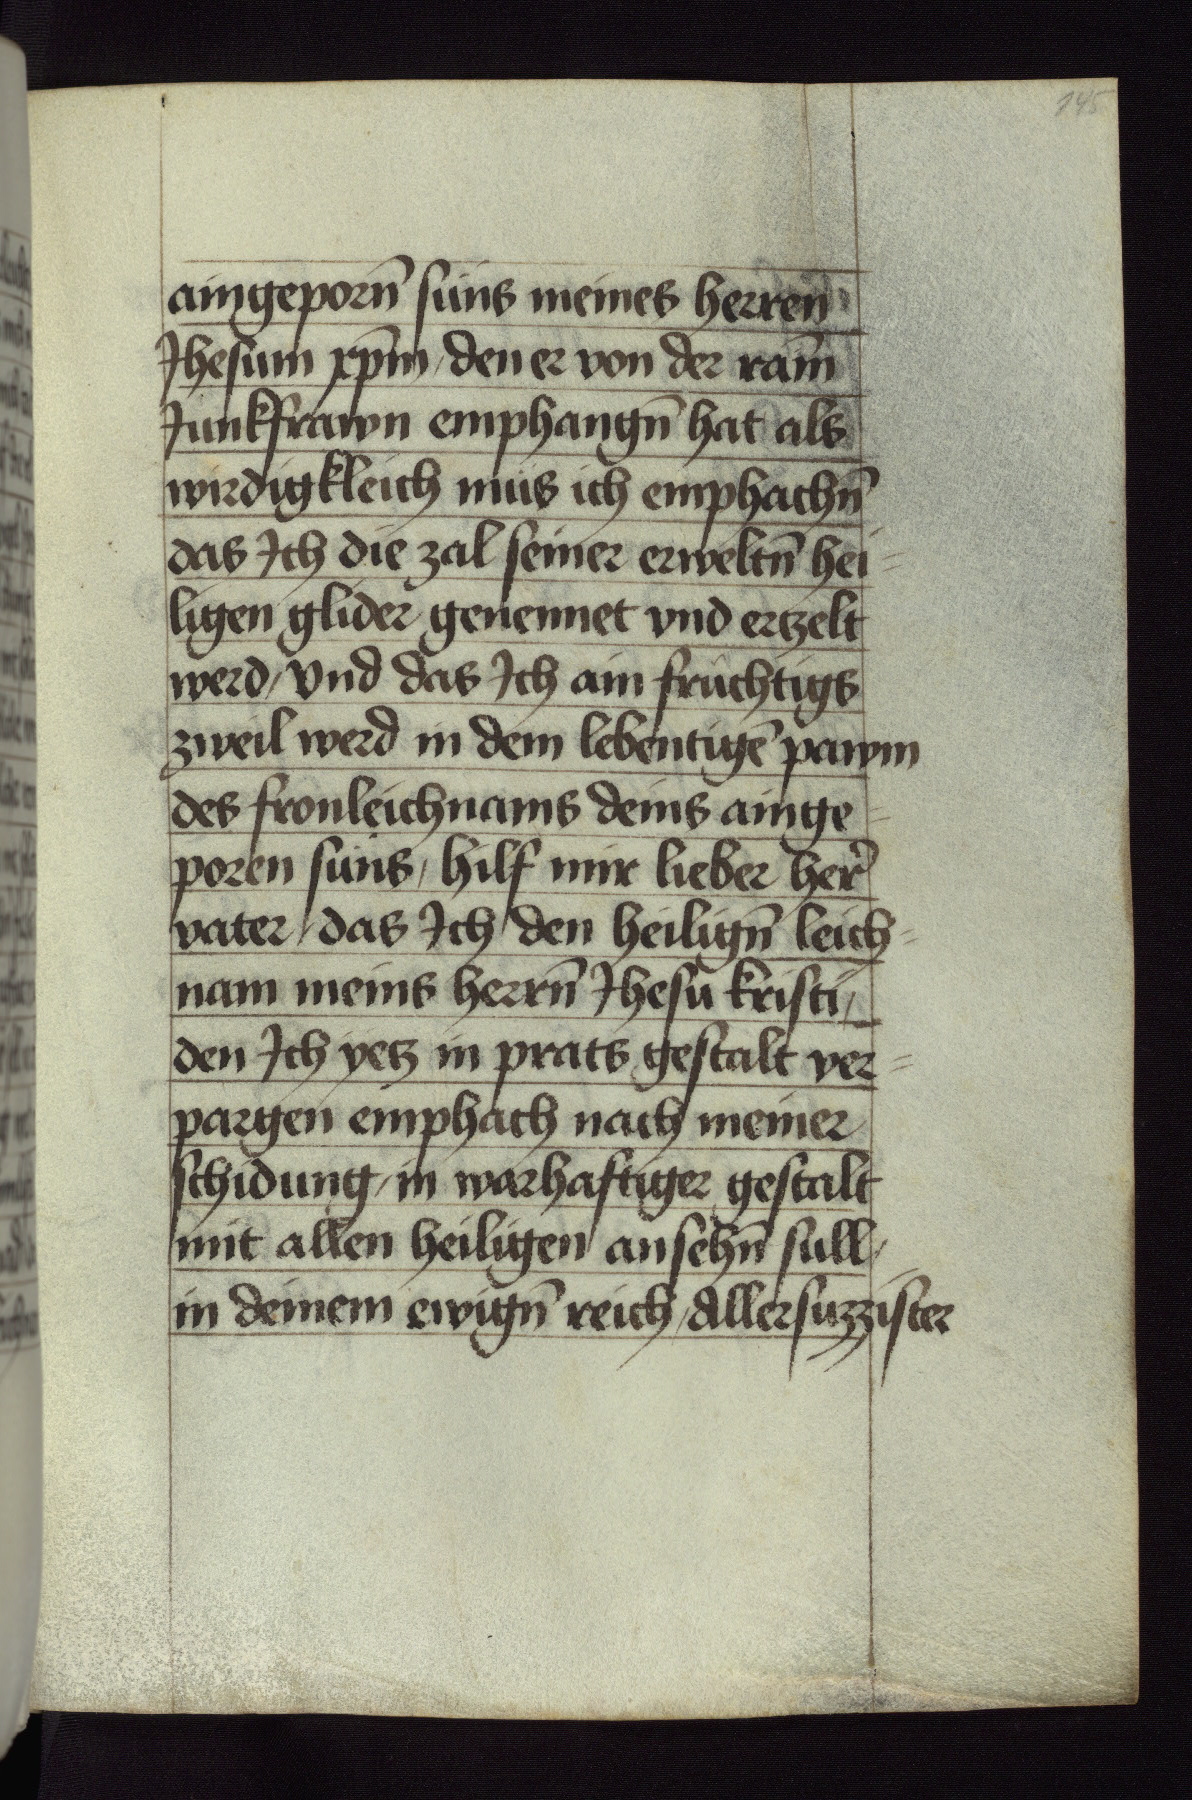 145
aingeporn̄ suns meines herren
Jhesum xp̄m / den er von der rain̄
Junkfrawn emphangn̄ hat als
wirdigkleich mus ich emphachn̄
das Ich die zal seiner erweltn̄ hei-
ligen glider genennet vnd ertzelt
werd / Vnd das Ich ain fruchtigs
zweil werd in dem lebentigē pawm
des fronleichnams deins ainge-
poren suns / hilf mir lieber her̄
vater / das Ich den heilign̄ leich-
nam meins herrn̄ Jhesu kristi /
den Ich yetz in prats gestalt ver-
pargen emphach nach meiner
schidung / in warhaftiger gestalt
mit allen heiligen ansehn̄ sull /
in deinem ewign̄ reich / Allersuzzister